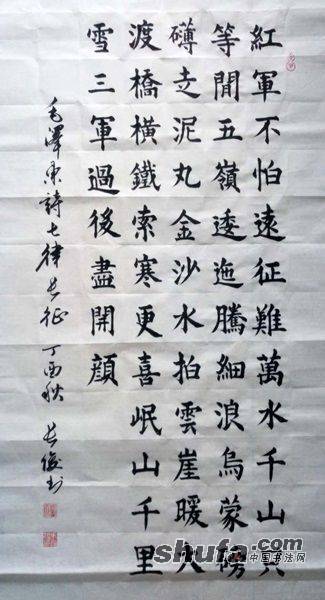 紅軍不怕遠征難萬水千山只
等閒五嶺逶迤騰細浪烏蒙磅
礴走泥丸金沙水拍雲崖暖大
渡橋橫鐵索寒更喜岷山千里
雪三軍過後盡開顏
毛澤东詩七律长征 丁酉秋 长俊书
shufa.com
中国书法网